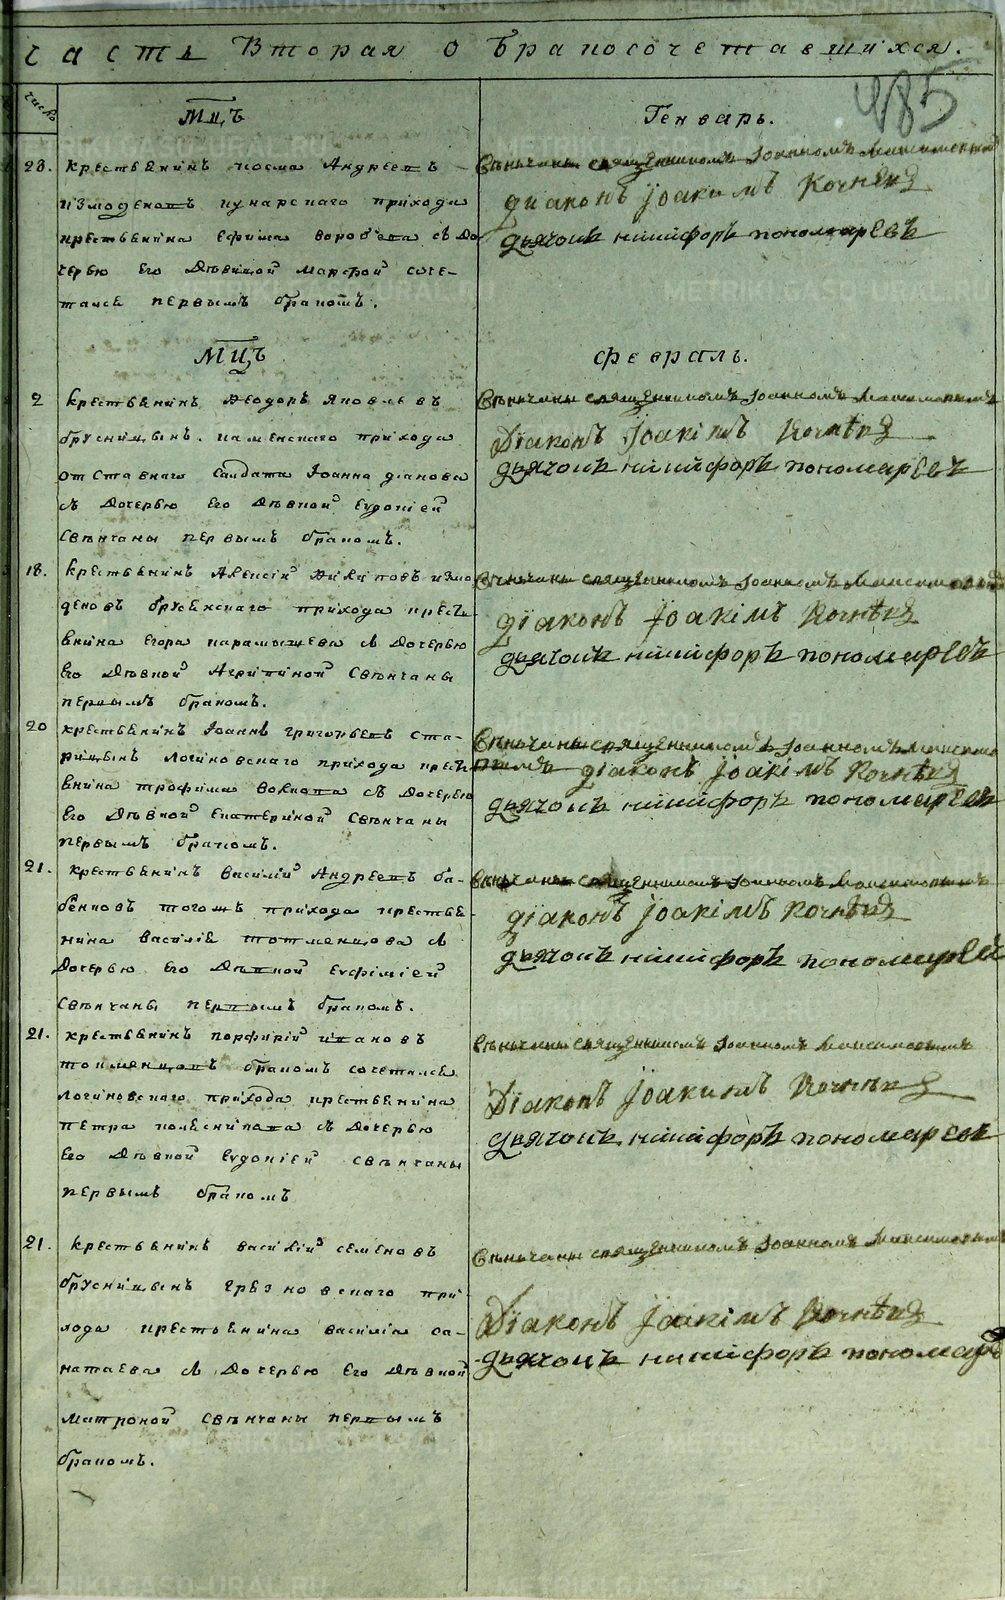 Часть Вторая о бракосочетавшихся.
485
число
Мцъ Генварь.
28. крестьенинъ косма Андреевъ
измоденовъ кунарскаго прихода
крестьенина ефима воробьева съ до
черью его дѣвицой марфой соче-
тался первымъ бракомъ.
Вѣнчаны священникомъ Іоанномъ Максимовымъ
диаконъ Іоакимъ Кочнѣвъ
дьячокъ никифоръ пономаревъ
Мцъ февраль.
2 крестьенинъ Ѳеодоръ яковлевъ
брусницынъ. каменскаго прихода
отставнаго салдата Іоанна діанова
съ дочерью его дѣвкой Евдокіей
свѣнчаны первымъ бракомъ.
Вѣнчаны священникомъ Іоанномъ Максимовымъ
Діаконъ Іоакімъ Кочнѣвъ
дьячокъ никифоръ пономаревъ
18. крестьенинъ Алексій Филиповъ измо
деновъ брусенскаго прихода кресть
енина Егора карамышева съ дочерью
Его дѣвкой Агрипиной Свѣнчаны
первымъ бракомъ.
Вѣнчаны священникомъ Іоанномъ Максимовымъ
діаконъ Іоакімъ Кочнѣвъ
дьячокъ никифоръ пономаревъ
20 крестьенинъ Іоаннъ григорьевъ ста-
рицынъ логиновскаго прихода кресть
енина трофима волкова съ дочерью
Его дѣвкой Екатериной Свѣнчаны
первымъ бракомъ.
Вѣнчаны священникомъ Іоанномъ Максимо
вымъ діаконъ Іоакімъ Кочнѣвъ
дьячокъ никифоръ пономаревъ
21. крестьенинъ василій Андреевъ ба-
бенковъ тогожъ прихода крестье
нина василіе тотменцова съ
дочерью Его дѣвкой Евфіміей
свѣнчаны первымъ бракомъ.
Вѣнчаны священникомъ Іоанномъ Максимовымъ
діаконъ Іоакімъ Кочнѣвъ
дьячокъ никифоръ пономаревъ
21. крестьенинъ порфирій ивановъ
токменцовъ бракомъ сочетался
логиновскаго прихода крестьенина
петра колескикова съ дочерью
Его дѣвкой Евдокіей свѣнчаны
первымъ бракомъ
Вѣнчаны священникомъ Іоанномъ Максимовымъ
Діаконъ Іоакимъ Кочнѣвъ
дьячокъ никифоръ пономаревъ
21. крестьенинъ василій семеновъ
брусницынъ грезновскаго при-
хода крестьенина василія са-
натаева съ дочерью Его дѣвкой
матроной свѣнчаны первымъ
бракомъ.
Вѣнчаны священникомъ Іоанномъ Максимовымъ
Діаконъ Іоакімъ Кочнѣвъ
дьячокъ никифоръ пономаревъ
METRIKI.GASO-URAL.RU